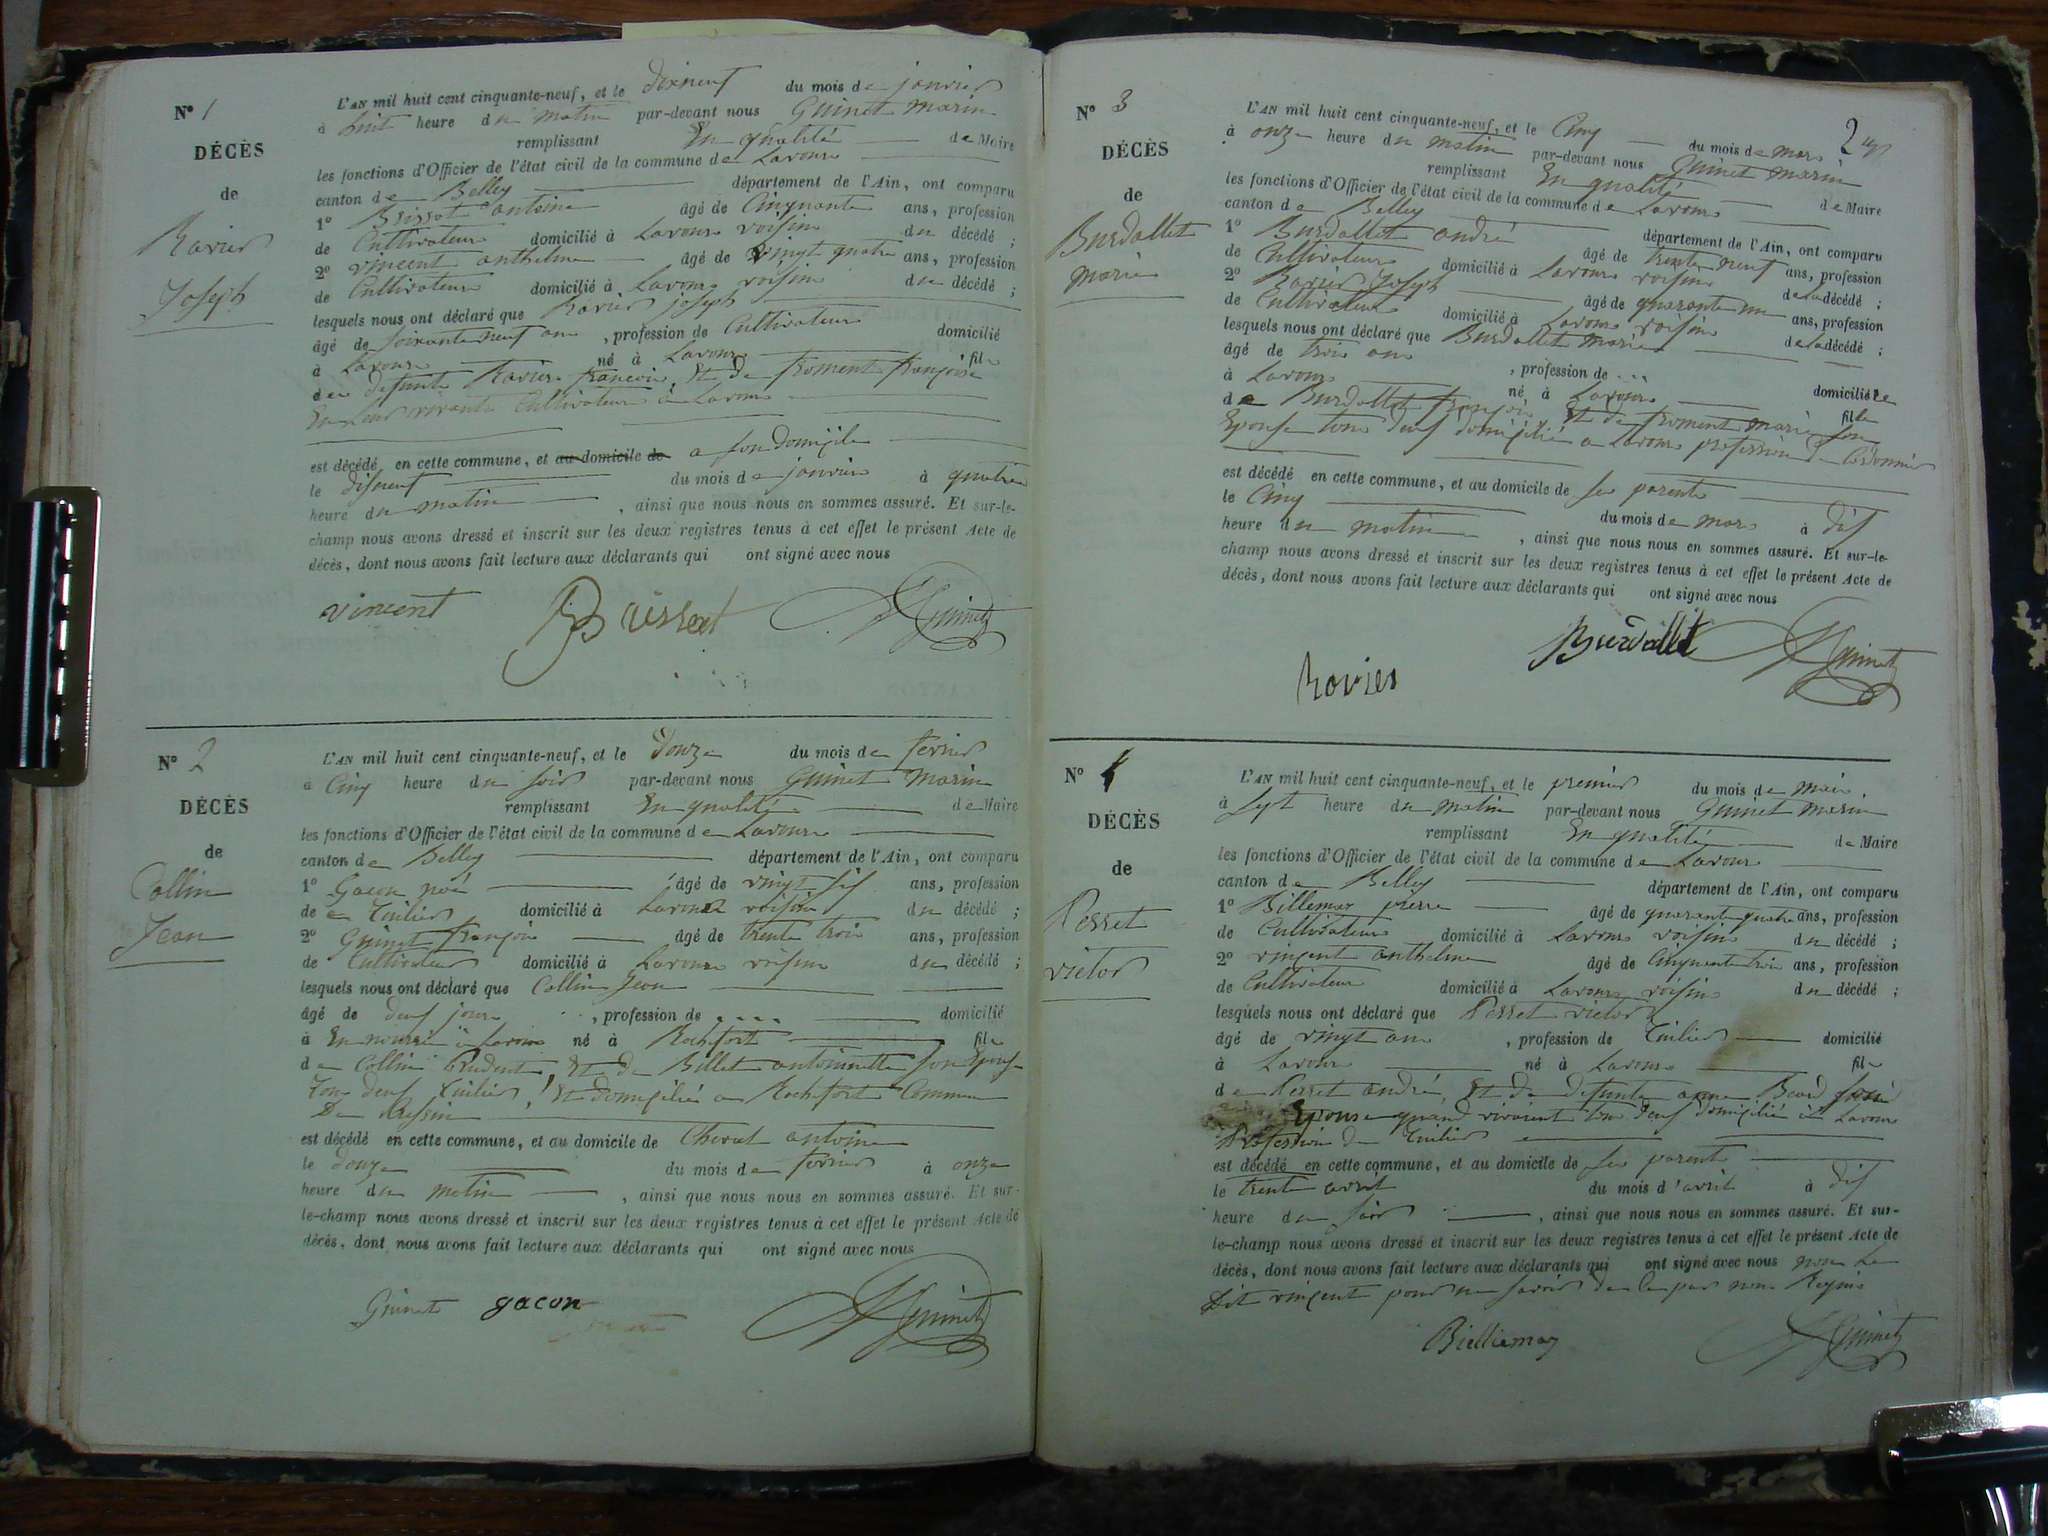 N° 1
DÉCÈS
de
Ravier
Joseph
L'AN mil huit cent cinquante-neuf, et le dixneuf du mois de janvier
à huit heure du matin par-devant nous Guinet Marin
remplissant En qualité de Maire
les fonctions d'Officier de l'état civil de la commune de Lavours
canton de Belley département de l'Ain, ont comparu
1° Brissot antoine âgé de Cinquante ans, profession
de Cultivateur domicilié à Lavours voisin du décédé ;
2° vincent anthelme âgé de vingt quatre ans, profession
de Cultivateur domicilié à Lavours voisin du décédé ;
lesquels nous ont déclaré que Ravier joseph
âgé de soixante neuf ans , profession de Cultivateur domicilié
à Lavours né à Lavours fils
des defunts Ravier françois, Et de froment françoise
En Leur vivants Cultivateurs à Lavours
est décédé en cette commune, et au domicile de a son domicile
le disneuf du mois de janvier à quatre
heure du matin , ainsi que nous nous en sommes assuré. Et sur-le-
champ nous avons dressé et inscrit sur les deux registres tenus à cet effet le présent Acte de
décès, dont nous avons fait lecture aux déclarants qui ont signé avec nous
vincent Brissot Guinet
N° 2
DÉCÈS
de
Collin
Jean
L'AN mil huit cent cinquante-neuf, et le Douze du mois de fevrier
à Cinq heure du soir par-devant nous Guinet Marin
remplissant En qualité de Maire
les fonctions d'Officier de l'état civil de la commune de Lavours
canton de Belley département de l'Ain, ont comparu
1° Gacon noé âgé de vingt six ans, profession
de Tuilier domicilié à Lavours voisin du décédé ;
2° Guinet françois âgé de trente trois ans, profession
de Cultivateur domicilié à Lavours voisin du décédé ;
lesquels nous ont déclaré que Collin Jean
âgé de deux jours , profession de .... domicilié
à En nourri à Lavours né à Rochfort fils
de Collin Prudent, Et de Billet antoinette son Epouse
Tous deux Tuilier, Et domiciliés a Rochfort Commune
De
est décédé en cette commune, et au domicile de antoine
le Douze du mois de fevrier à onze
heure du matin , ainsi que nous nous en sommes assuré. Et sur-
le-champ nous avons dressé et inscrit sur les deux registres tenus à cet effet le présent Acte de
décès, dont nous avons fait lecture aux déclarants qui ont signé avec nous
Guinet gacon Guinet
2
N° 3
DÉCÈS
de
Burdallet
marie
L'AN mil huit cent cinquante-neuf, et le Cinq du mois de mars
à onze heure du matin par-devant nous Guinet Marin
remplissant En qualité de Maire
les fonctions d'Officier de l'état civil de la commune de Lavours
canton de Belley département de l'Ain, ont comparu
1° Burdallet andré âgé de trente neuf ans, profession
de Cultivateur domicilié à Lavours voisin de la décédé ;
2° Ravier Joseph âgé de quarante un ans, profession
de Cultivateur domicilié à Lavours voisin de la décédé ;
lesquels nous ont déclaré que Burdallet marie
âgé de trois ans , profession de ... domiciliée
à Lavours né à Lavours fille
de Burdallet françois Et de froment marie son
Epouse tous deux domiciliés a Lavours profession de Cordonnier
est décédé en cette commune, et au domicile de ses parents
le Cinq du mois de mars à dis
heure du matin , ainsi que nous nous en sommes assuré. Et sur-le-
champ nous avons dressé et inscrit sur les deux registres tenus à cet effet le présent Acte de
décès, dont nous avons fait lecture aux déclarants qui ont signé avec nous
Ravier Burdallet Guinet
N° 4
DÉCÈS
de
Perret
victor
L'AN mil huit cent cinquante-neuf, et le premier du mois de mai
à sept heure du matin par-devant nous Guinet Marin
remplissant En qualité de Maire
les fonctions d'Officier de l'état civil de la commune de Lavours
canton de Belley département de l'Ain, ont comparu
1° Billemaz pierre âgé de quarante quatre ans, profession
de Cultivateur domicilié à Lavours voisin du décédé ;
2° vincent anthelme âgé de Cinquante trois ans, profession
de Cultivateur domicilié à Lavours voisin du décédé ;
lesquels nous ont déclaré que Perret victor
âgé de vingt ans , profession de Tuilier domicilié
à Lavours né à Lavours fils
de Perret andré, Et de Defunte anne
Epouse quand vivaient tous deux domicilié à Lavours
Profession de Tuilier
est décédé en cette commune, et au domicile de ses parents
le trente avril du mois d'avril à dis
heure du soir , ainsi que nous nous en sommes assuré. Et sur-
le-champ nous avons dressé et inscrit sur les deux registres tenus à cet effet le présent Acte de
décès, dont nous avons fait lecture aux déclarants qui ont signé avec nous non Le
Dit vincent pour ne savoir de ce par nous Requis
Billiemaz Guinet